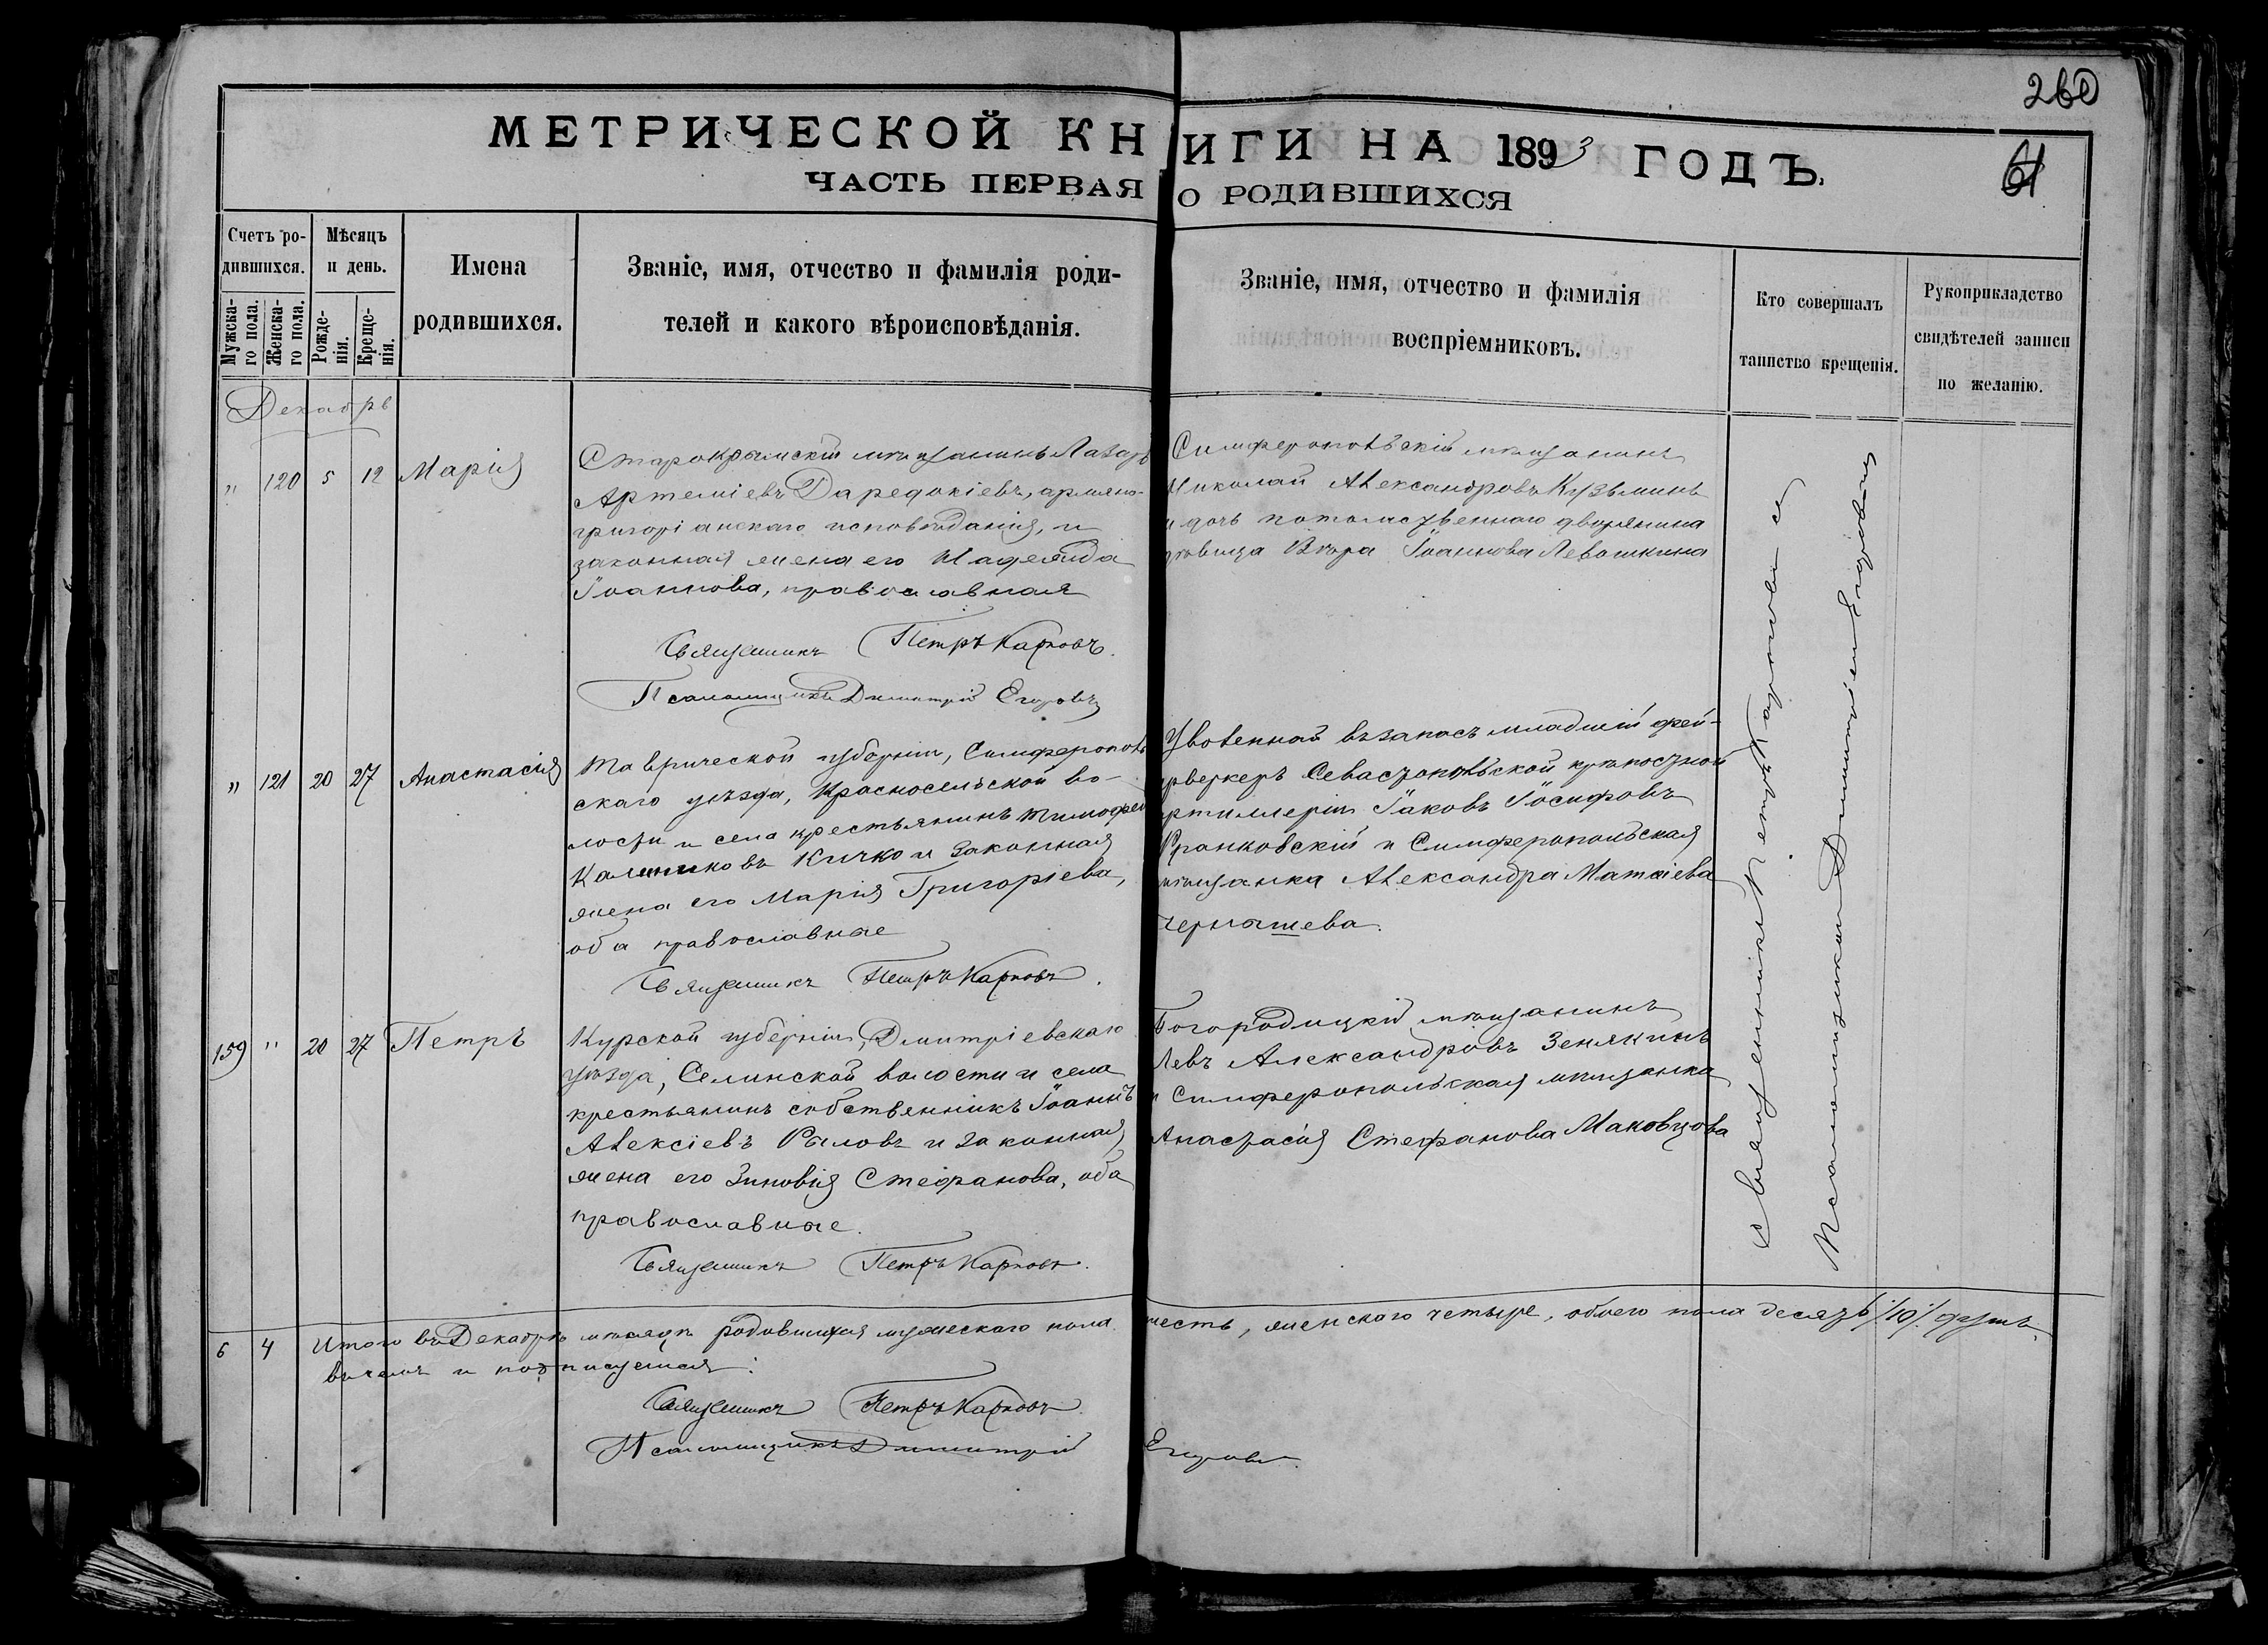 260
МЕТРИЧЕСКОЙ КНИГИ НА 1893 ГОДЪ.
61
ЧАСТЬ ПЕРВАЯ О РОДИВШИХСЯ
Счетъ ро-
дившихся.
Мужска-
го пола.
Женска-
го пола.
Мѣсяцъ
и день.
Рожде-
нія.
Креще-
нія.
Имена
родившихся.
Званіе, имя, отчество и фамилія роди-
телей и какого вѣроисповѣданія.
Званіе, имя, отчество и фамилія
воспріемниковъ.
Кто совершалъ
таинство крещенія.
Рукоприкладство
свидѣтелей записи
по желанію.
Декабрь
" 120 5 12 Марія
Старокрымскій мѣщанинъ Лазарь
Артеміевъ, армяно-
григоріанскаго исповѣданія, и
законная жена его Надежда
Іоаннова, православная
Священникъ Петръ Карповъ.
Псаломщикъ Димитрій Егоровъ
Симферопольскій мѣщанинъ
Николай Александровъ Кузьминъ
и дочь потомственнаго дворянина
дѣвица Вѣра Іоаннова Левашкина
" 121 20 27 Анастасія
Таврической губерніи, Симферополь
скаго уѣзда, Красносельской во-
лости и села крестьянинъ Тимофей
Калинниковъ Кичко и законная
жена его Марія Григоріева,
оба православные
Священникъ Петръ Карповъ.
Уволенный въ запасъ младшій фей-
рверкеръ Севастопольской крѣпостной
артиллеріи Іаковъ Іосифовъ
и Симферопольская
мѣщанка Александра Матѳіева
Чернышева.
159 " 20 27 Петръ
Курской губерніи, Дмитріевскаго
уѣзда, Селинской волости и села
крестьянинъ собственникъ Іоаннъ
Алексіевъ Рыловъ и законная
жена его Зиновія Стефанова, оба
православные.
Священникъ Петръ Карповъ.
Богородицкій мѣщанинъ
Левъ Александровъ Землякинъ
и Симферопольская мѣщанка
Анастасія Стефанова Маковцова
Священникъ Петръ Карповъ съ
Псаломщикомъ Димитріемъ Егоровымъ
6 4 Итого въ Декабрѣ мѣсяцѣ родившихся мужескаго пола шесть, женскаго четыре, обоего пола десять /10/. душъ,
въ чемъ и подписуемся:
Священникъ Петръ Карповъ
Псаломщикъ Димитрій Егоровъ.